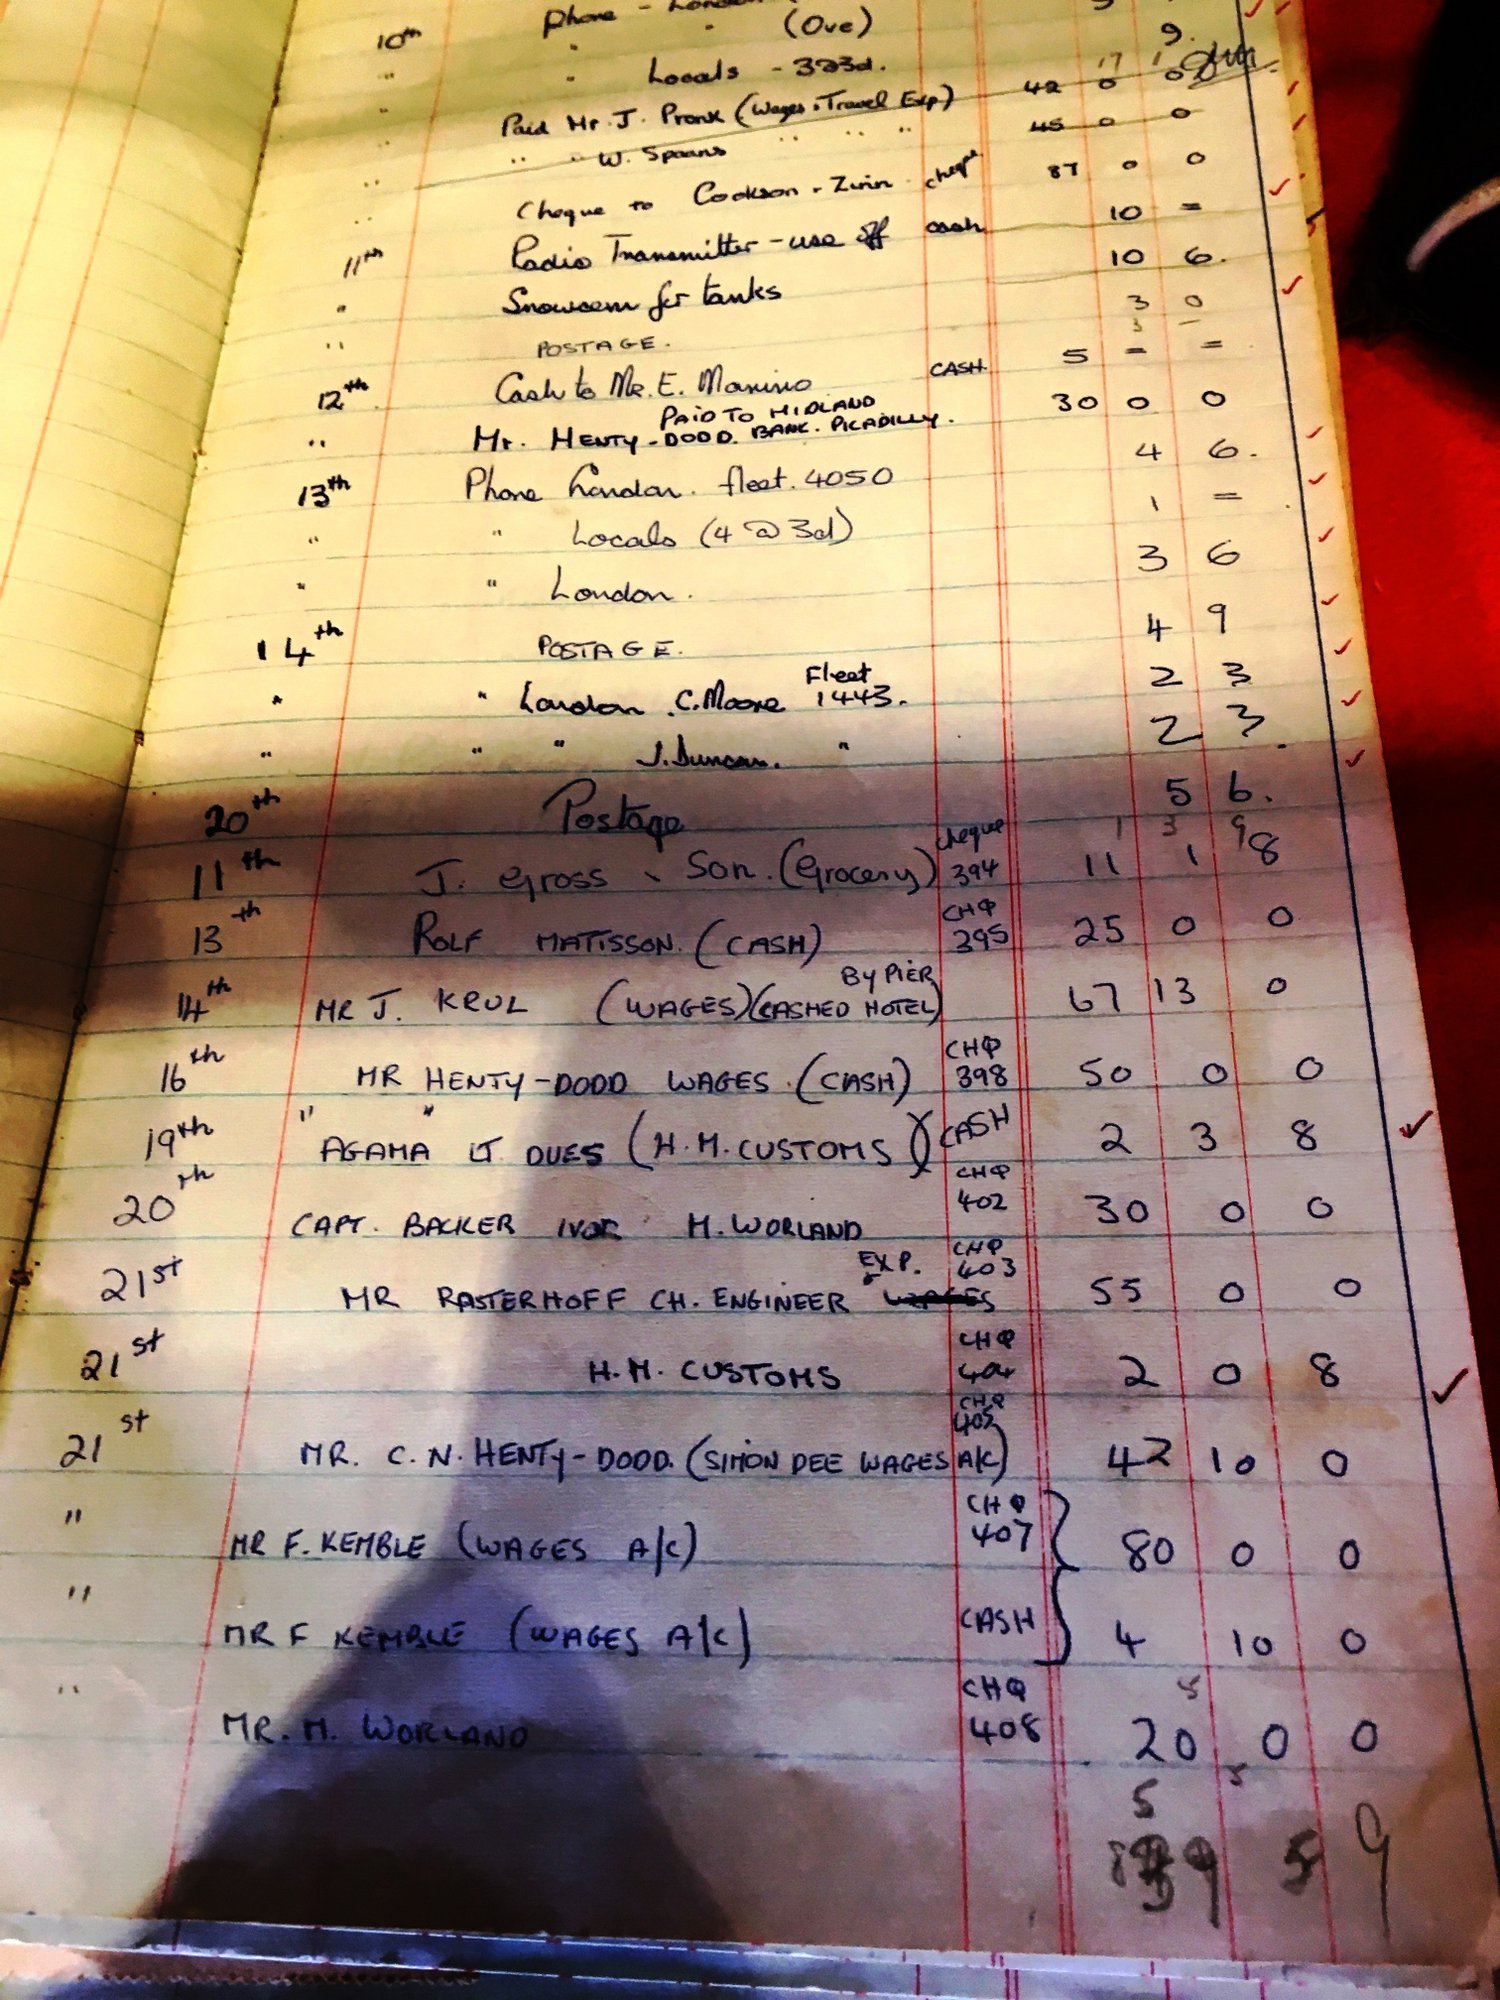 10th Phone - London
" " (Ove) 9.
" " Locals - 3@3d. 9.
" Paid Mr. J. Pronk (Wages + Travel Exp) 42 0 0
" " " W. Spaans " " " 45 0 0
" Cheque to Cookson + Zinn cheque 87 0 0
11th Radio Transmitter - use off cash 10 =
" Snowcem for tanks 10 6.
" POSTAGE. 3 0
3 -
12th Cash to Mr. E. Manino CASH 5 = =
PAID TO MIDLAND
" Mr. HENTY-DODD. BANK. PICADILLY. 30 0 0
13th Phone London. fleet. 4050 4 6.
" " Locals (4 @ 3d) 1 =
" " London. 3 6
14th POSTAGE. 4 9
Fleet
" " London C. Moore 1443. 2 3
" " " J. Duncan. " 2 3.
20th Postage 5 6.
cheque 1 3 9
11th J. Gross & Son. (Grocery) 394 11 1 8
CHQ
13th ROLF MATISSON. (CASH) 395 25 0 0
BY PIER
14th MR J. KRUL (WAGES) (CASHED HOTEL) 67 13 0
CHQ
16th MR HENTY-DODD WAGES. (CASH) 398 50 0 0
" "
19th AGAMA LT DUES (H.M. CUSTOMS) CASH 2 3 8
CHQ
20th CAPT. BACKER IVOR M. WORLAND 402 30 0 0
EXP. CHQ 403
21st MR RASTERHOFF CH. ENGINEER WAGES 55 0 0
CHQ
21st H.M. CUSTOMS 404 2 0 8
CHQ
405
21st MR. C. N. HENTY-DODD. (SIMON DEE WAGES A/C) 42 10 0
CHQ
" MR F. KEMBLE (WAGES A/C) 407 80 0 0
" MR F KEMBLE (WAGES A/C) CASH 4 10 0
CHQ 5
" MR. M. WORLAND 408 20 0 0
5 5
5 9